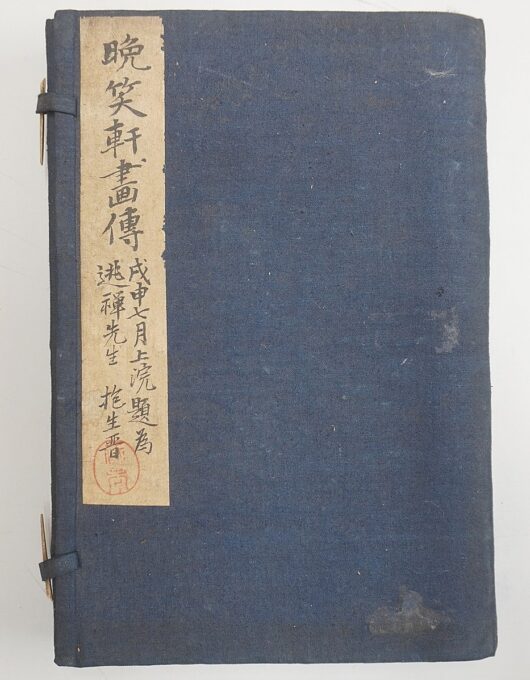 晩笑軒畫傳
戌申七月上浣題為
逃禪先生 抱生晋